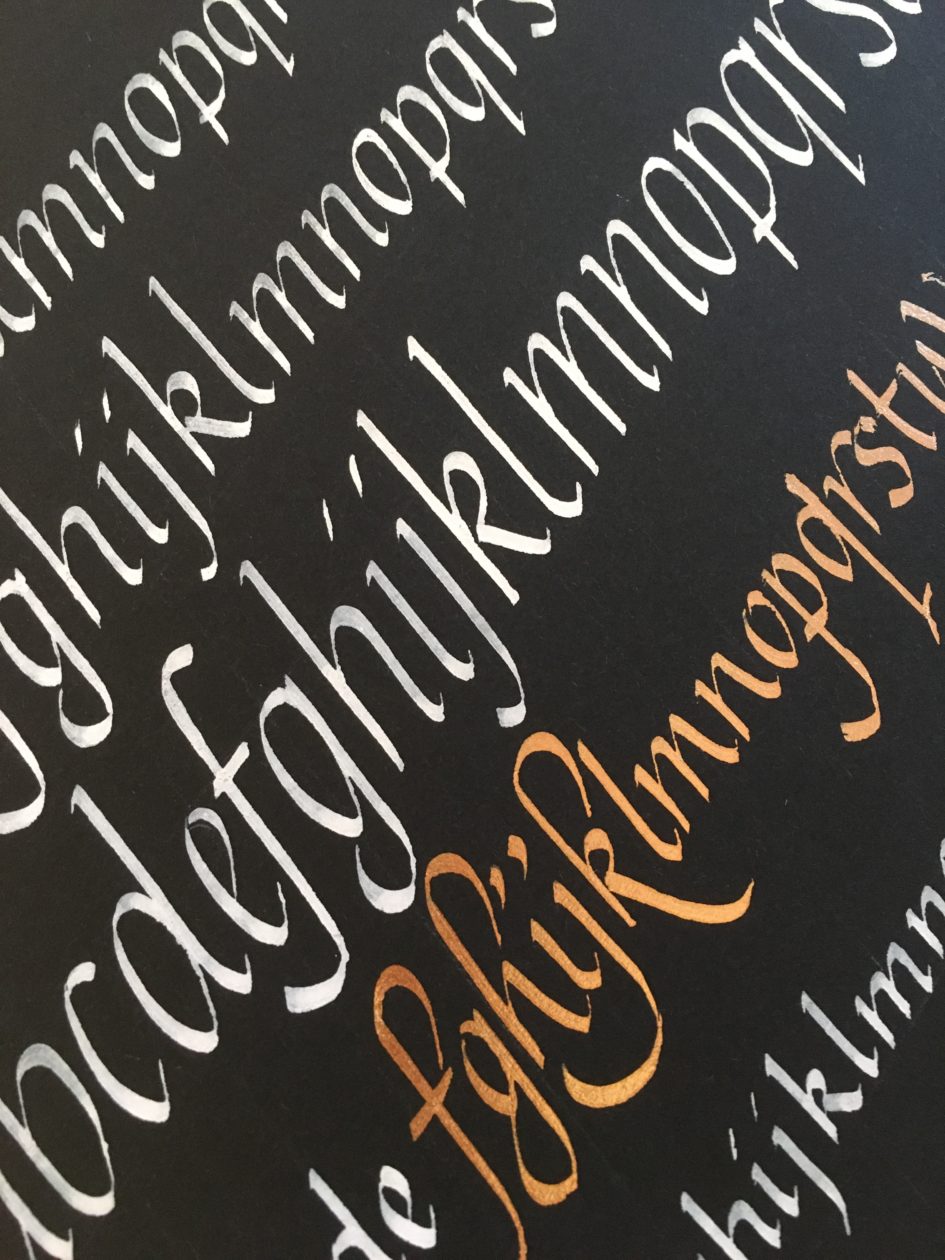 lmnopqr
fghijklmnopqrs
bcdefghijklmnopqrs
de fghijklmnopqrstu
hijklmn